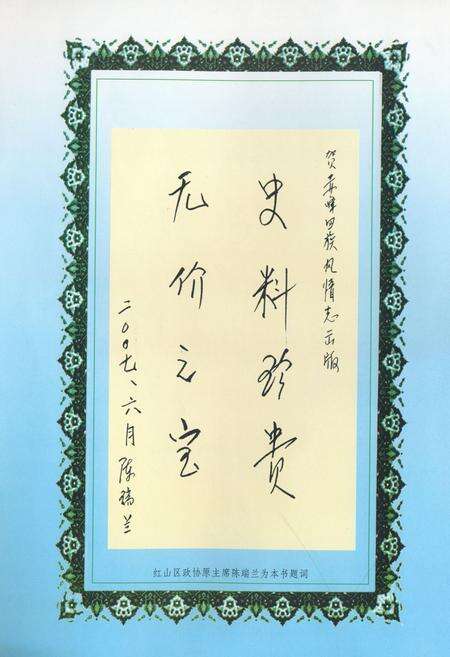 贺赤峰回族风情志出版
史料珍贵
无价之宝
二〇〇七、六月 陈瑞兰
红山区政协原主席陈瑞兰为本书题词